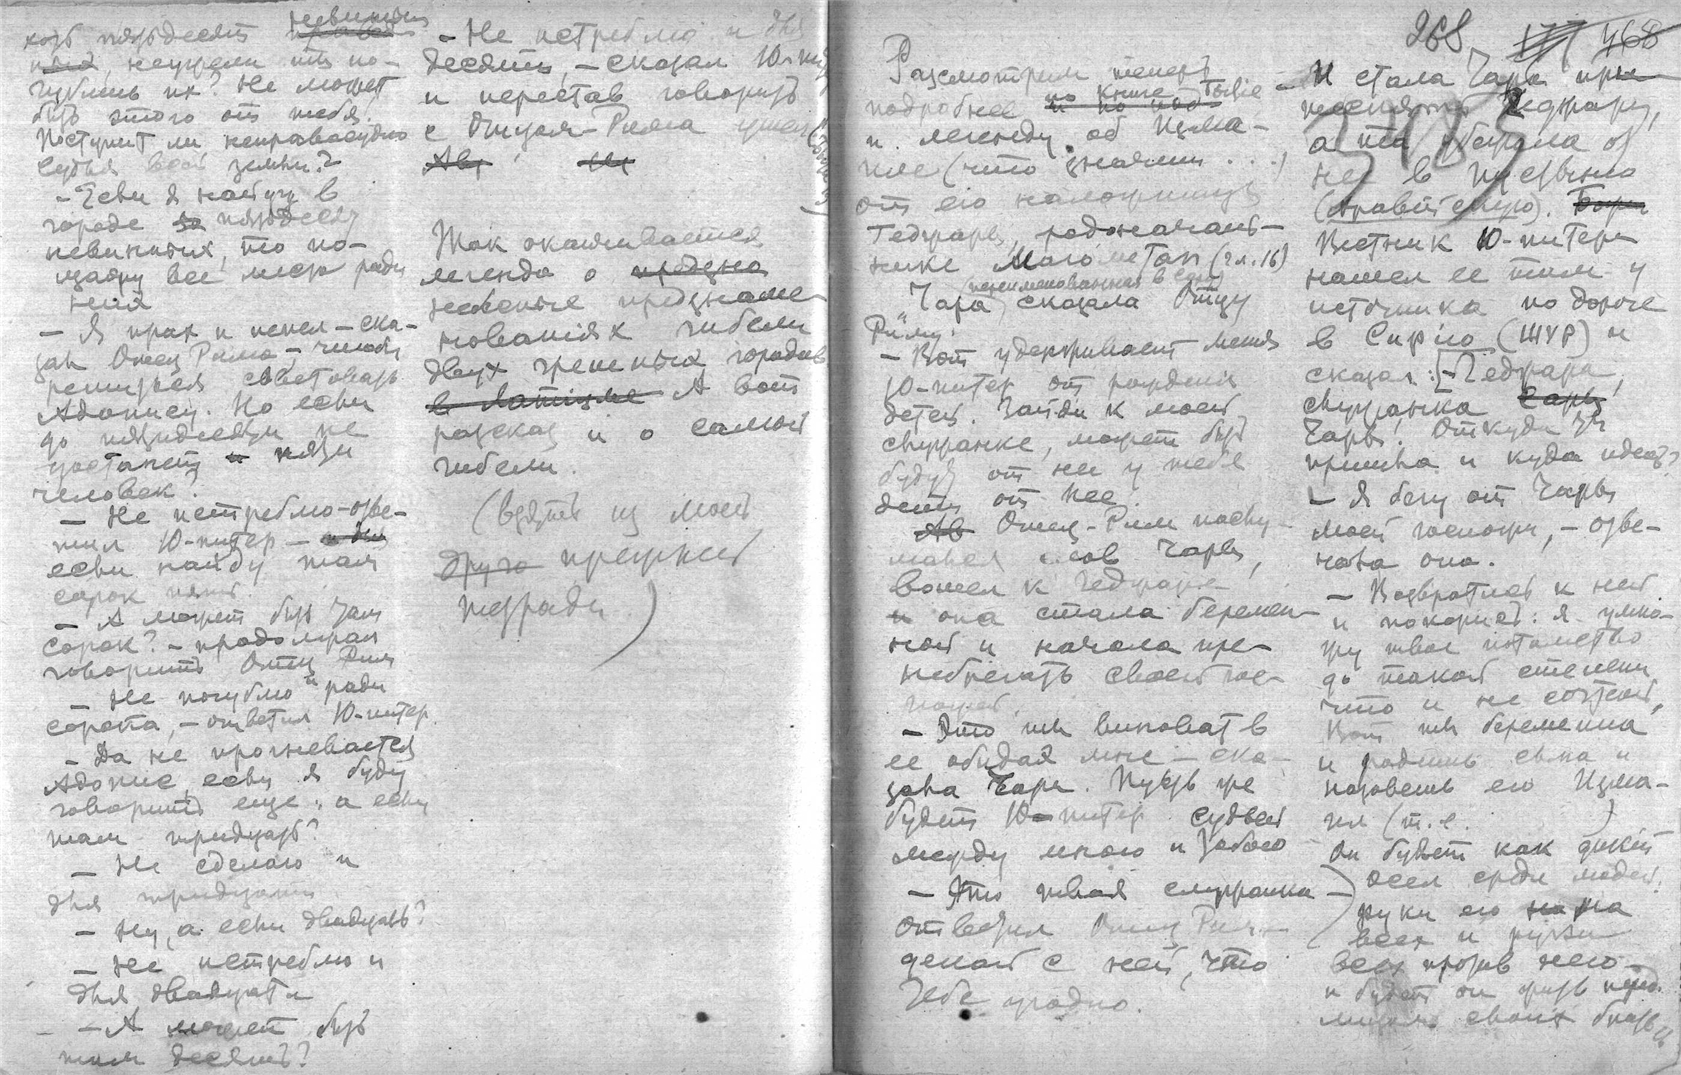 хоть пятьдесят невинных
неужели ты по-
губишь их? Не может
быть этого от тебя.
Поступит ли неправосудно
судья всей земли?
- Если я найду в
городе пятьдесят
невинных, то по-
щажу все место ради
них
- Я прах и пепел - ска-
зал Отец Рима - чтобы
решиться советовать
Адонису. Но если
до пятидесяти не
достанет пяти
человек?
- Не истреблю - отве-
тил Ю-питер -
если найду там
сорок пять.
- А может быть там
сорок? - продолжал
говорить Отец Рим
- Не погублю и ради
сорока, - ответил Ю-питер.
- Да не прогневается
Адонис, если я буду
говорить еще, а если
там тридцать?
- Не сделаю и
для тридцати
- Ну, а если двадцать?
- Не истреблю и
для двадцати
- А может быть
там десять?
- Не истреблю и для
десяти, - сказал Ю-питер
и перестав говорить
с Отцом-Рима ушел
Так оканчивается
легенда о
небесных предзнаме-
нованиях гибели
двух грешных городов
А вот
рассказ и о самой
гибели.
(взять из моей
прежней
тетради)
268 468
Рассмотрим теперь
подробнее по книге Бытие
и легенду об Изма-
иле (что значит . . .)
от его наложницы
Геджары, родоначаль-
нике Магометан (гл. 16)
(переименованная в Сару)
Чара сказала Отцу
Риму:
- Вот удерживает меня
Ю-питер от рождения
детей. Зайди к моей
служанке, может быть
будут от нее у тебя
дети от нее.
Отец-Рим послу-
шался слов Чары,
вошел к Геджаре
и она стала беремен-
ной и начала пре-
небрегать своей гос-
пожей.
- Это ты виноват в
ее обидах мне - ска-
зала Чара. Пусть же
будет Ю-питер судьей
между мною и тобою
- Это твоя служанка -
ответил Отец Рим -
делай с ней, что
тебе угодно.
- И стала Чара при-
теснять Геджару,
а та убежала от
нее в пустыню
(Аравийскую).
Вестник Ю-питера
нашел ее там у
источника по дороге
в Сирию (ШУР) и
сказал: - Геджара,
служанка
Чары! Откуда ты
пришла и куда идешь?
- Я бегу от Чары
моей госпожи, - отве-
чала она.
- Возвратись к ней
и покорись: я умно-
жу твое потомство
до такой степени
что и не сочтешь,
Вот ты беременна
и родишь сына и
назовешь его Изма-
ил (т.е. )
Он будет как дикий
осел среди людей.
руки его на
всех и руки
всех против него -
и будет он жить пред
лицом своих братьев